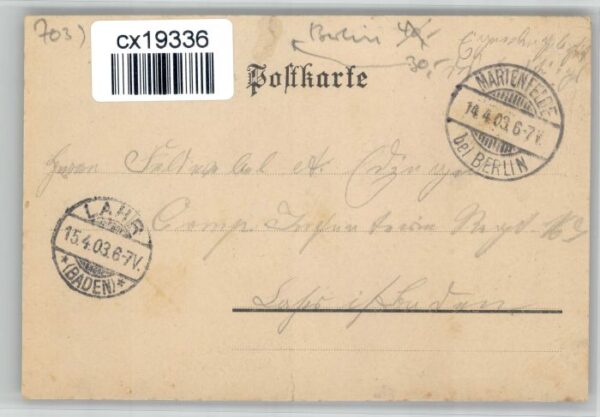 703)
cx19336
Berlin
30.-
Postkarte
MARIENFELDE
14.4.03.6-7V.
bei BERLIN
Herrn Feldwebel A.
Comp. Infanterie Regt.
LAHR
15.4.03.6-7V.
*(BADEN)*
Lahr i/Baden